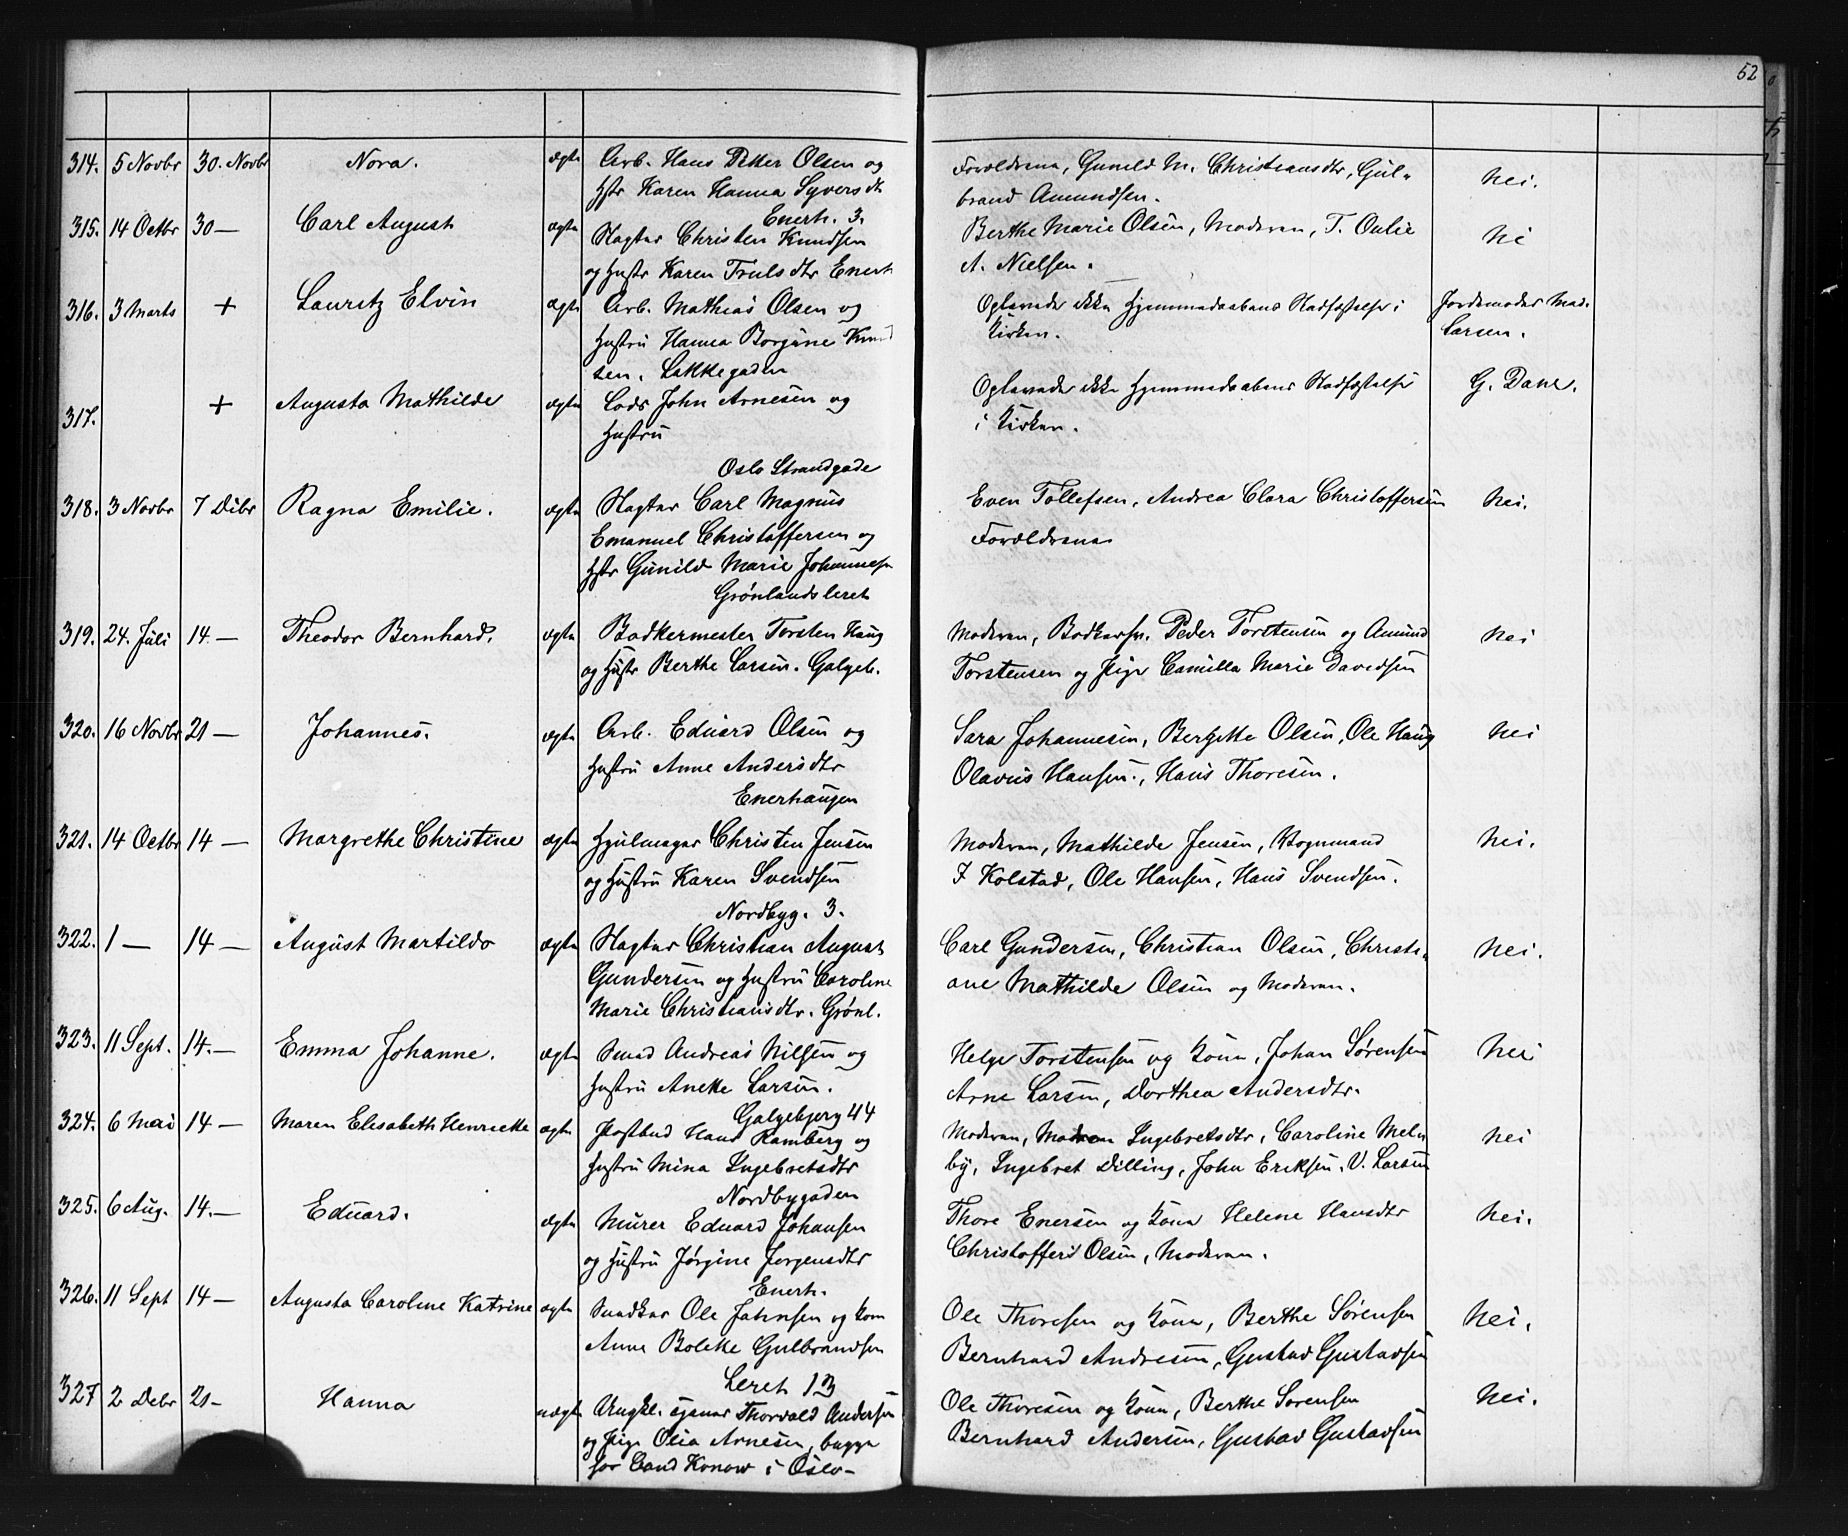 52
314. 5 Novbr 30. Novbr Nora. ægte Arb. Hans Petter Olsen og
Hstr Karen Hanna Syversdtr
Enerh. 3.
Forældrene, Gunild M. Christiansdtr, Gul-
brand Amundsen.
Nei.
315. 14 Octbr 30 — Carl August ægte Slagter Christen Knudsen
og Hustr Karen Trulsdtr Enerh
Berthe Marie Olsen, Moderen, T. Oulie
A. Nielsen.
Ne
316. 3 Marts + Lauritz Elvin ægte Arb. Mathias Olsen og
Hustru Hanna Borgine Knud
sen. Lakkegaden
Oplevede ikke Hjemmedaabens Stadfæstelse i
Kirken.
Jordemoder Mad.
Larsen.
317. + Augusta Mathilde ægte Lods John Arnesen og
Hustru
Oslo Strandgade
Oplevede ikke Hjemmedaabens Stadfæstelse
i Kirken.
G. Dane.
318. 3 Novbr 7 Dcbr Ragna Emilie. ægte Slagter Carl Magnus
Emanuel Christoffersen og
Hstr Gunild Marie Johannesen
Grønlandsleret
Even Tollefsen, Andrea Clara Christoffersen
Forældrene
Nei.
319. 24. Juli 14 — Theodor Bernhard. ægte Bødkermester Torsten Haug
og Hustr Berthe Larsen. Galgeb.
Moderen, Bødkersv. Peder Torstensen og Amund
Torstensen og Pige Camilla Marie Davidsen
Nei
320. 16 Novbr 21 — Johannes. ægte Arb. Eduard Olsen og
Hustru Anne Andersdtr
Enerhaugen
Sara Johannesen, Bergitte Olsen, Ole Haug
Olavus Hansen, Hans Thoresen.
Nei
321. 14 Octbr 14 — Margrethe Christine ægte Hjulmager Christen Jensen
og Hustru Karen Svendsen
Nordbyg. 3.
Moderen, Mathilde Jensen, Vognmand
I Kolstad, Ole Hansen, Hans Svendsen.
Nei.
322. 1 — 14 — August Martildo ægte Slagter Christian August
Gundersen og Hustru Caroline
Marie Christiansdtr. Grønl.
Carl Gundersen, Christian Olsen, Christi-
ane Mathilde Olsen og Moderen.
Nei.
323. 11 Sept. 14. — Emma Johanne. ægte Smed Andreas Nilsen og
Hustru Anette Larsen.
Galgebjerg 44
Helge Torstensen og Kone, Johan Sørensen
Arne Larsen, Dorthea Andersdtr.
Nei
324. 6 Mai 14 — Maren Elisabeth Henriette ægte Postbud Hans Ramberg og
Hustru Mina Ingebretsdtr
Nordbygaden
Moderen, Maren Ingebretsdtr, Caroline Meln
by, Ingebret Dilling, John Eriksen. V. Larsen
Nei
325. 6 Aug. 14. — Eduard. ægte Murer Eduard Johansen
og Hustru Jørgine Jørgensdtr
Enerh.
Thore Enersen og Kone Helene Hansdtr
Christoffer Olsen, Moderen.
Nei.
326. 11 Sept 14 — Augusta Caroline Katrine ægte Snedker Ole Jahnsen og Kone
Anne Bolette Gulbrandsen
Leret 13
Ole Thoresen og Kone, Berthe Sørensen
Bernhard Andresen, Gustav Gustavsen
Nei.
327 2 Debr 21 — Hanna uægte Ungkl. Thorvald Andersen
og Pige Olia Arnesen, begge
hos Cand Konow i Oslo —
Ole Thoresen og Kone, Berthe Sørensen
Bernhard Andersen, Gustav Gustavsen
Nei.